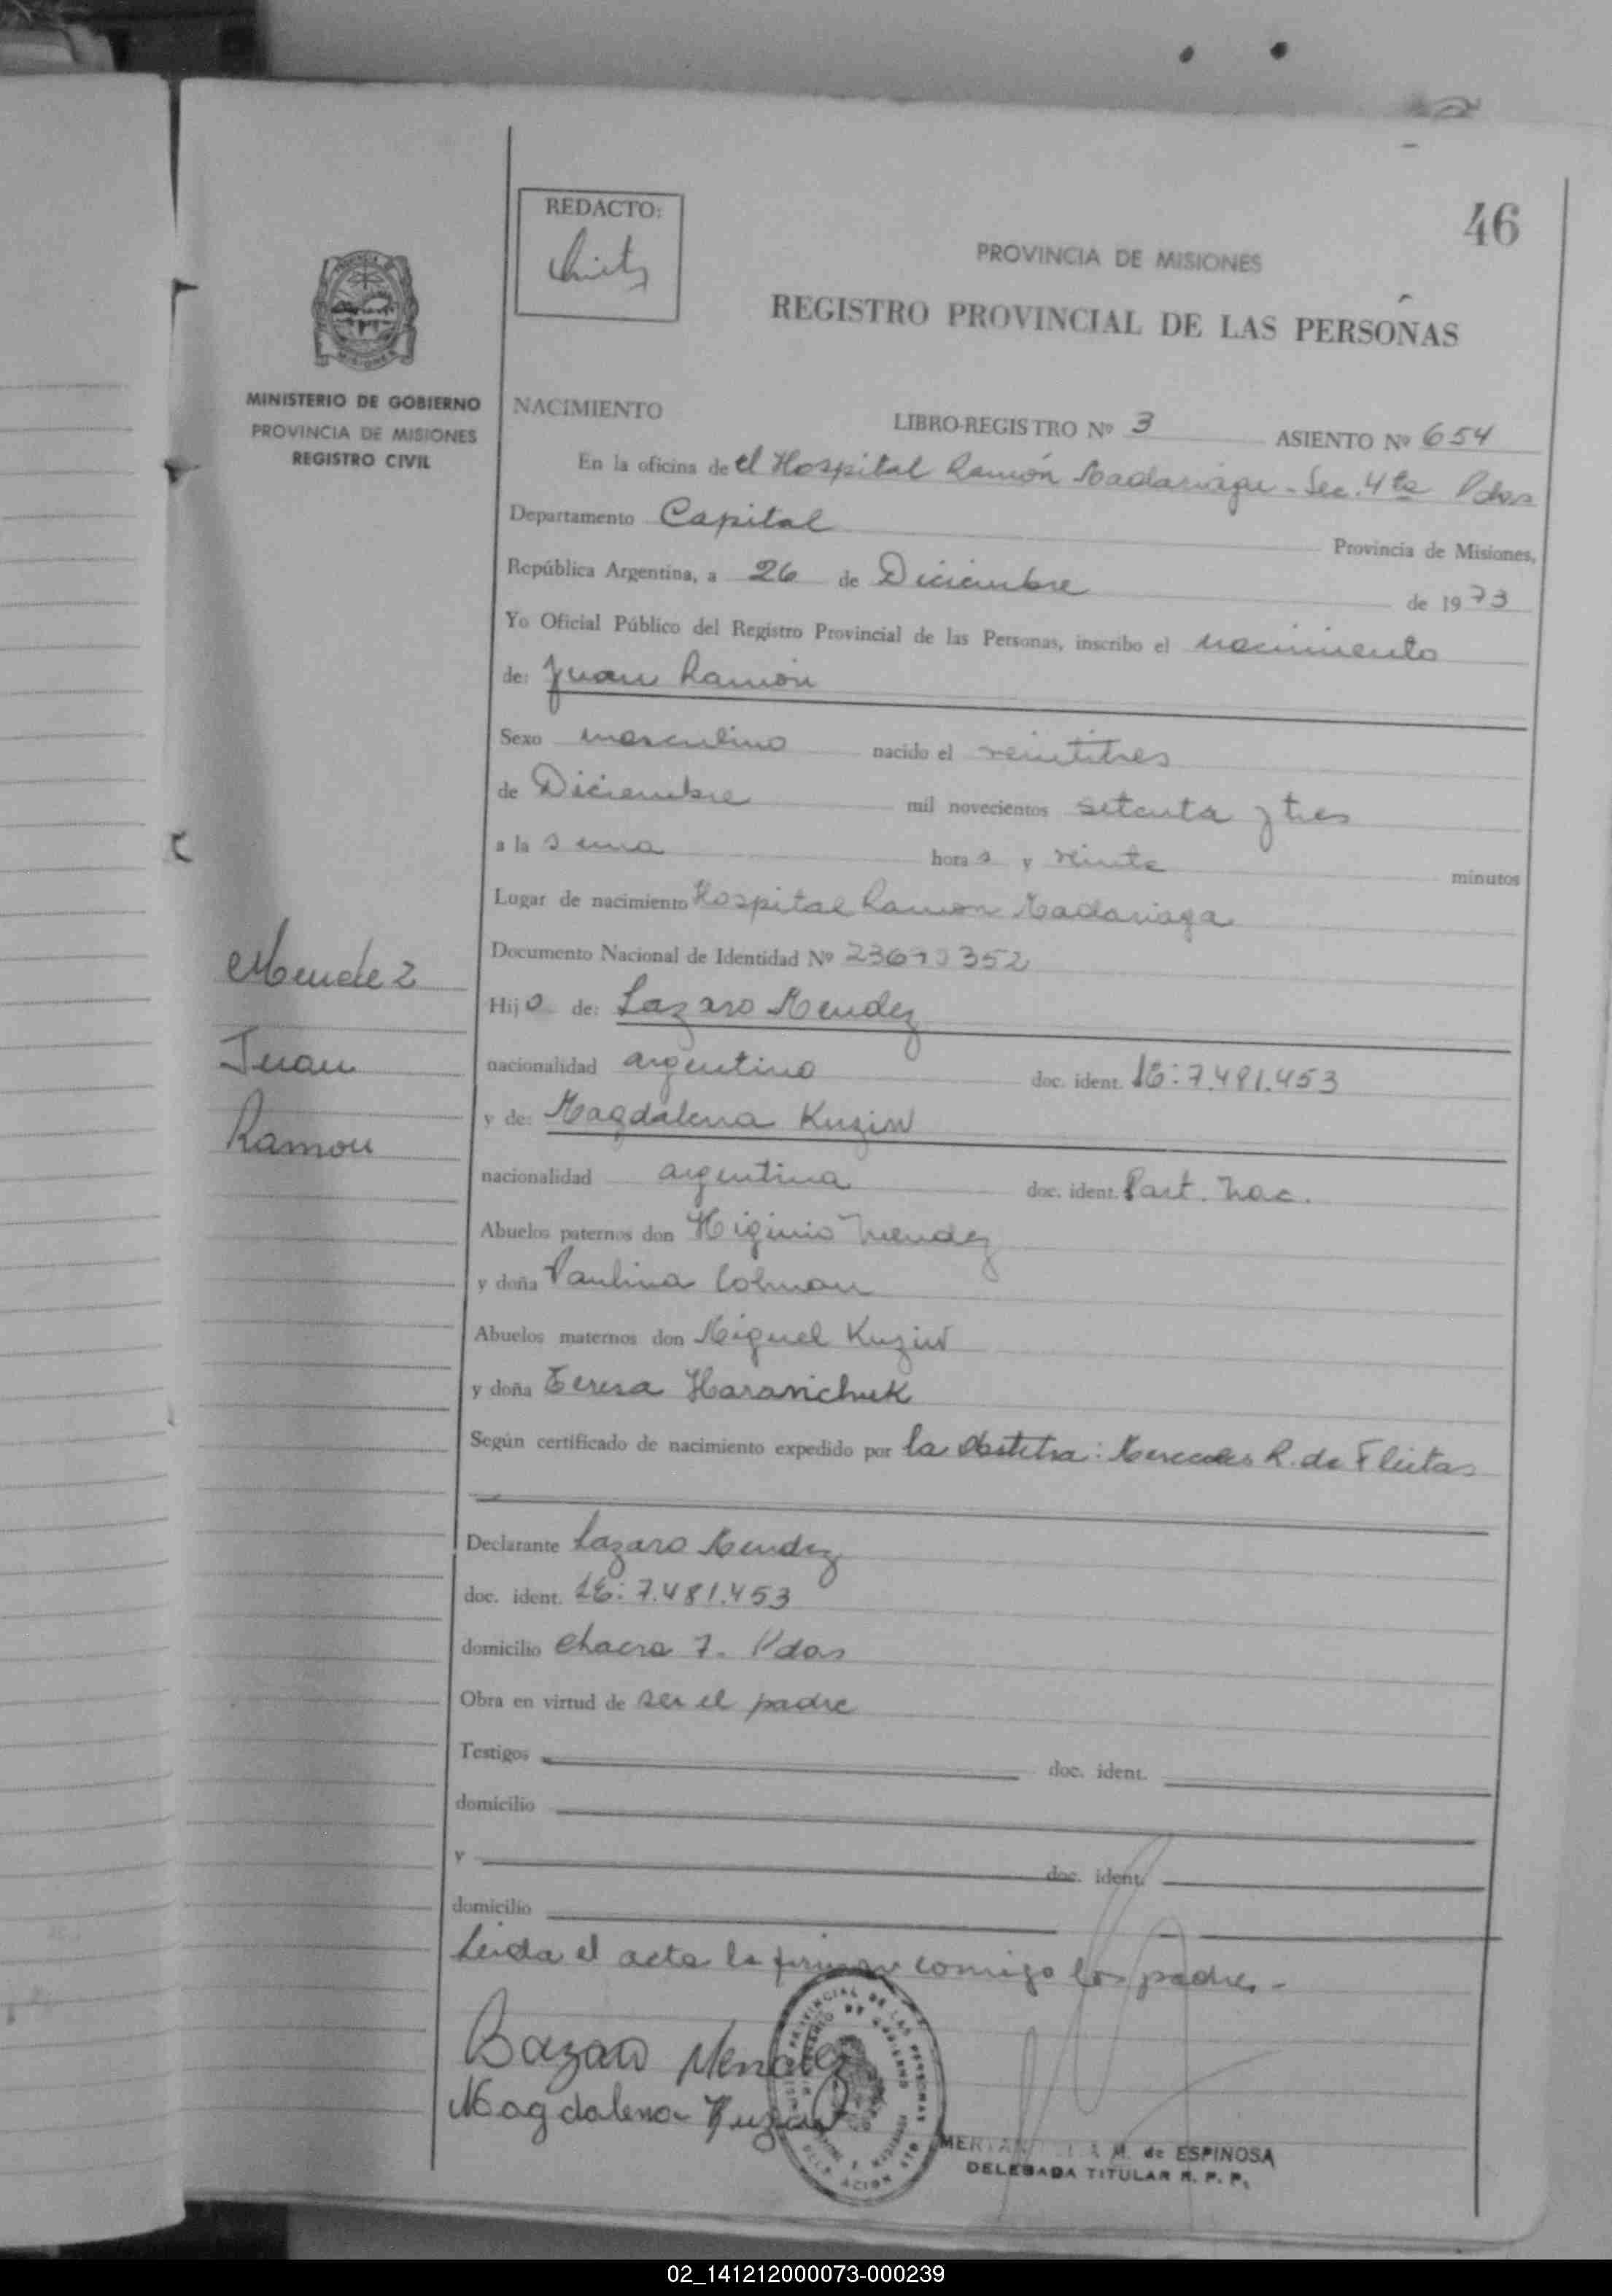 46
REDACTO:
PROVINCIA DE MISIONES
REGISTRO PROVINCIAL DE LAS PERSONAS
MINISTERIO DE GOBIERNO
PROVINCIA DE MISIONES
REGISTRO CIVIL
NACIMIENTO
LIBRO-REGISTRO Nº 3 ASIENTO Nº 654
En la oficina de el Hospital Ramón Madariaga - Sec. 4ta Pdas
Departamento Capital Provincia de Misiones,
República Argentina, a 26 de Diciembre de 1973
Yo Oficial Público del Registro Provincial de las Personas, inscribo el nacimiento
de: Juan Ramón
Sexo masculino nacido el veintitres
de Diciembre mil novecientos setenta y tres
a la s una hora s y veinte minutos
Lugar de nacimiento Hospital Ramon Madariaga
Documento Nacional de Identidad Nº
Mendez
Juan
Ramon
Hijo de: Lazaro Mendez
nacionalidad argentino doc. ident. LE: 7.481.453
y de: Magdalena Kuziw
nacionalidad argentina doc. ident. Part. Nac.
Abuelos paternos don Higinio Mendez
y doña Paulina Colman
Abuelos maternos don Miguel Kuziw
y doña Teresa Haranichuk
Según certificado de nacimiento expedido por la Obstetra: Mercedes R. de Fleitas
Declarante Lazaro Mendez
doc. ident. LE: 7.481.453
domicilio Chacra 7. Pdas
Obra en virtud de ser el padre
Testigos doc. ident.
domicilio
y doc. ident.
domicilio
Leida el acta la firman comigo los padres -
Mendez
Magdalena
M. de ESPINOSA
DELEGADA TITULAR R. P. P.
02_141212000073-000239